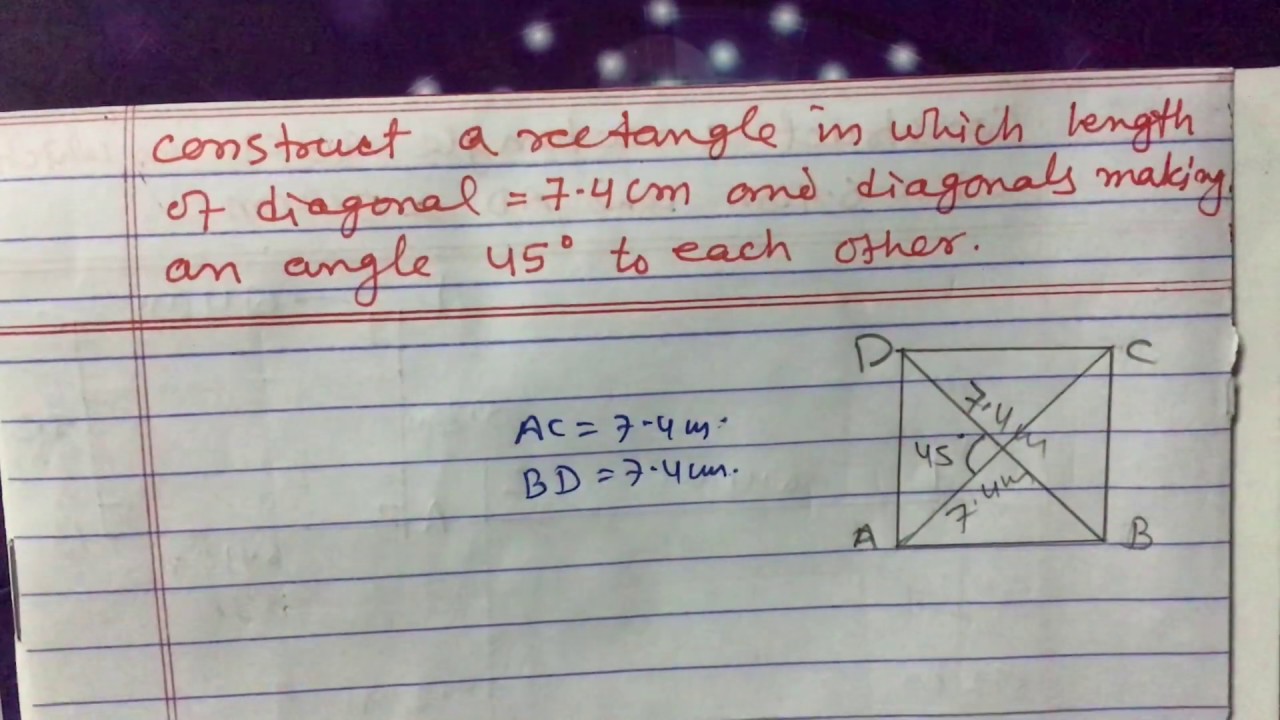 construct a rectangle in which length
of diagonal = 7.4 cm and diagonals making
an angle 45° to each other.
D C
7.4
AC = 7.4 m.
45°
BD = 7.4 cm.
7.4m
A B